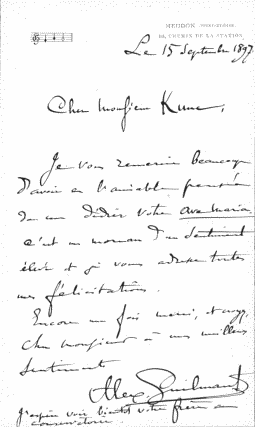 MEUDON (SEINE-ET-OISE)
CHEMIN DE LA STATION
Le 15 Septembre 1897
Cher Monsieur Kunc,
Je vous remercie beaucoup
d'avoir eu l'aimable pensée
de me dédier votre Ave Maria
c'est un morceau d'un sentiment
élevé et je vous adresse toutes
mes félicitations.
Encore une fois merci, et croyez,
cher monsieur à mes meilleurs
sentiments
Alex. Guilmant
J'espère voir bientôt votre frère au
conservatoire.